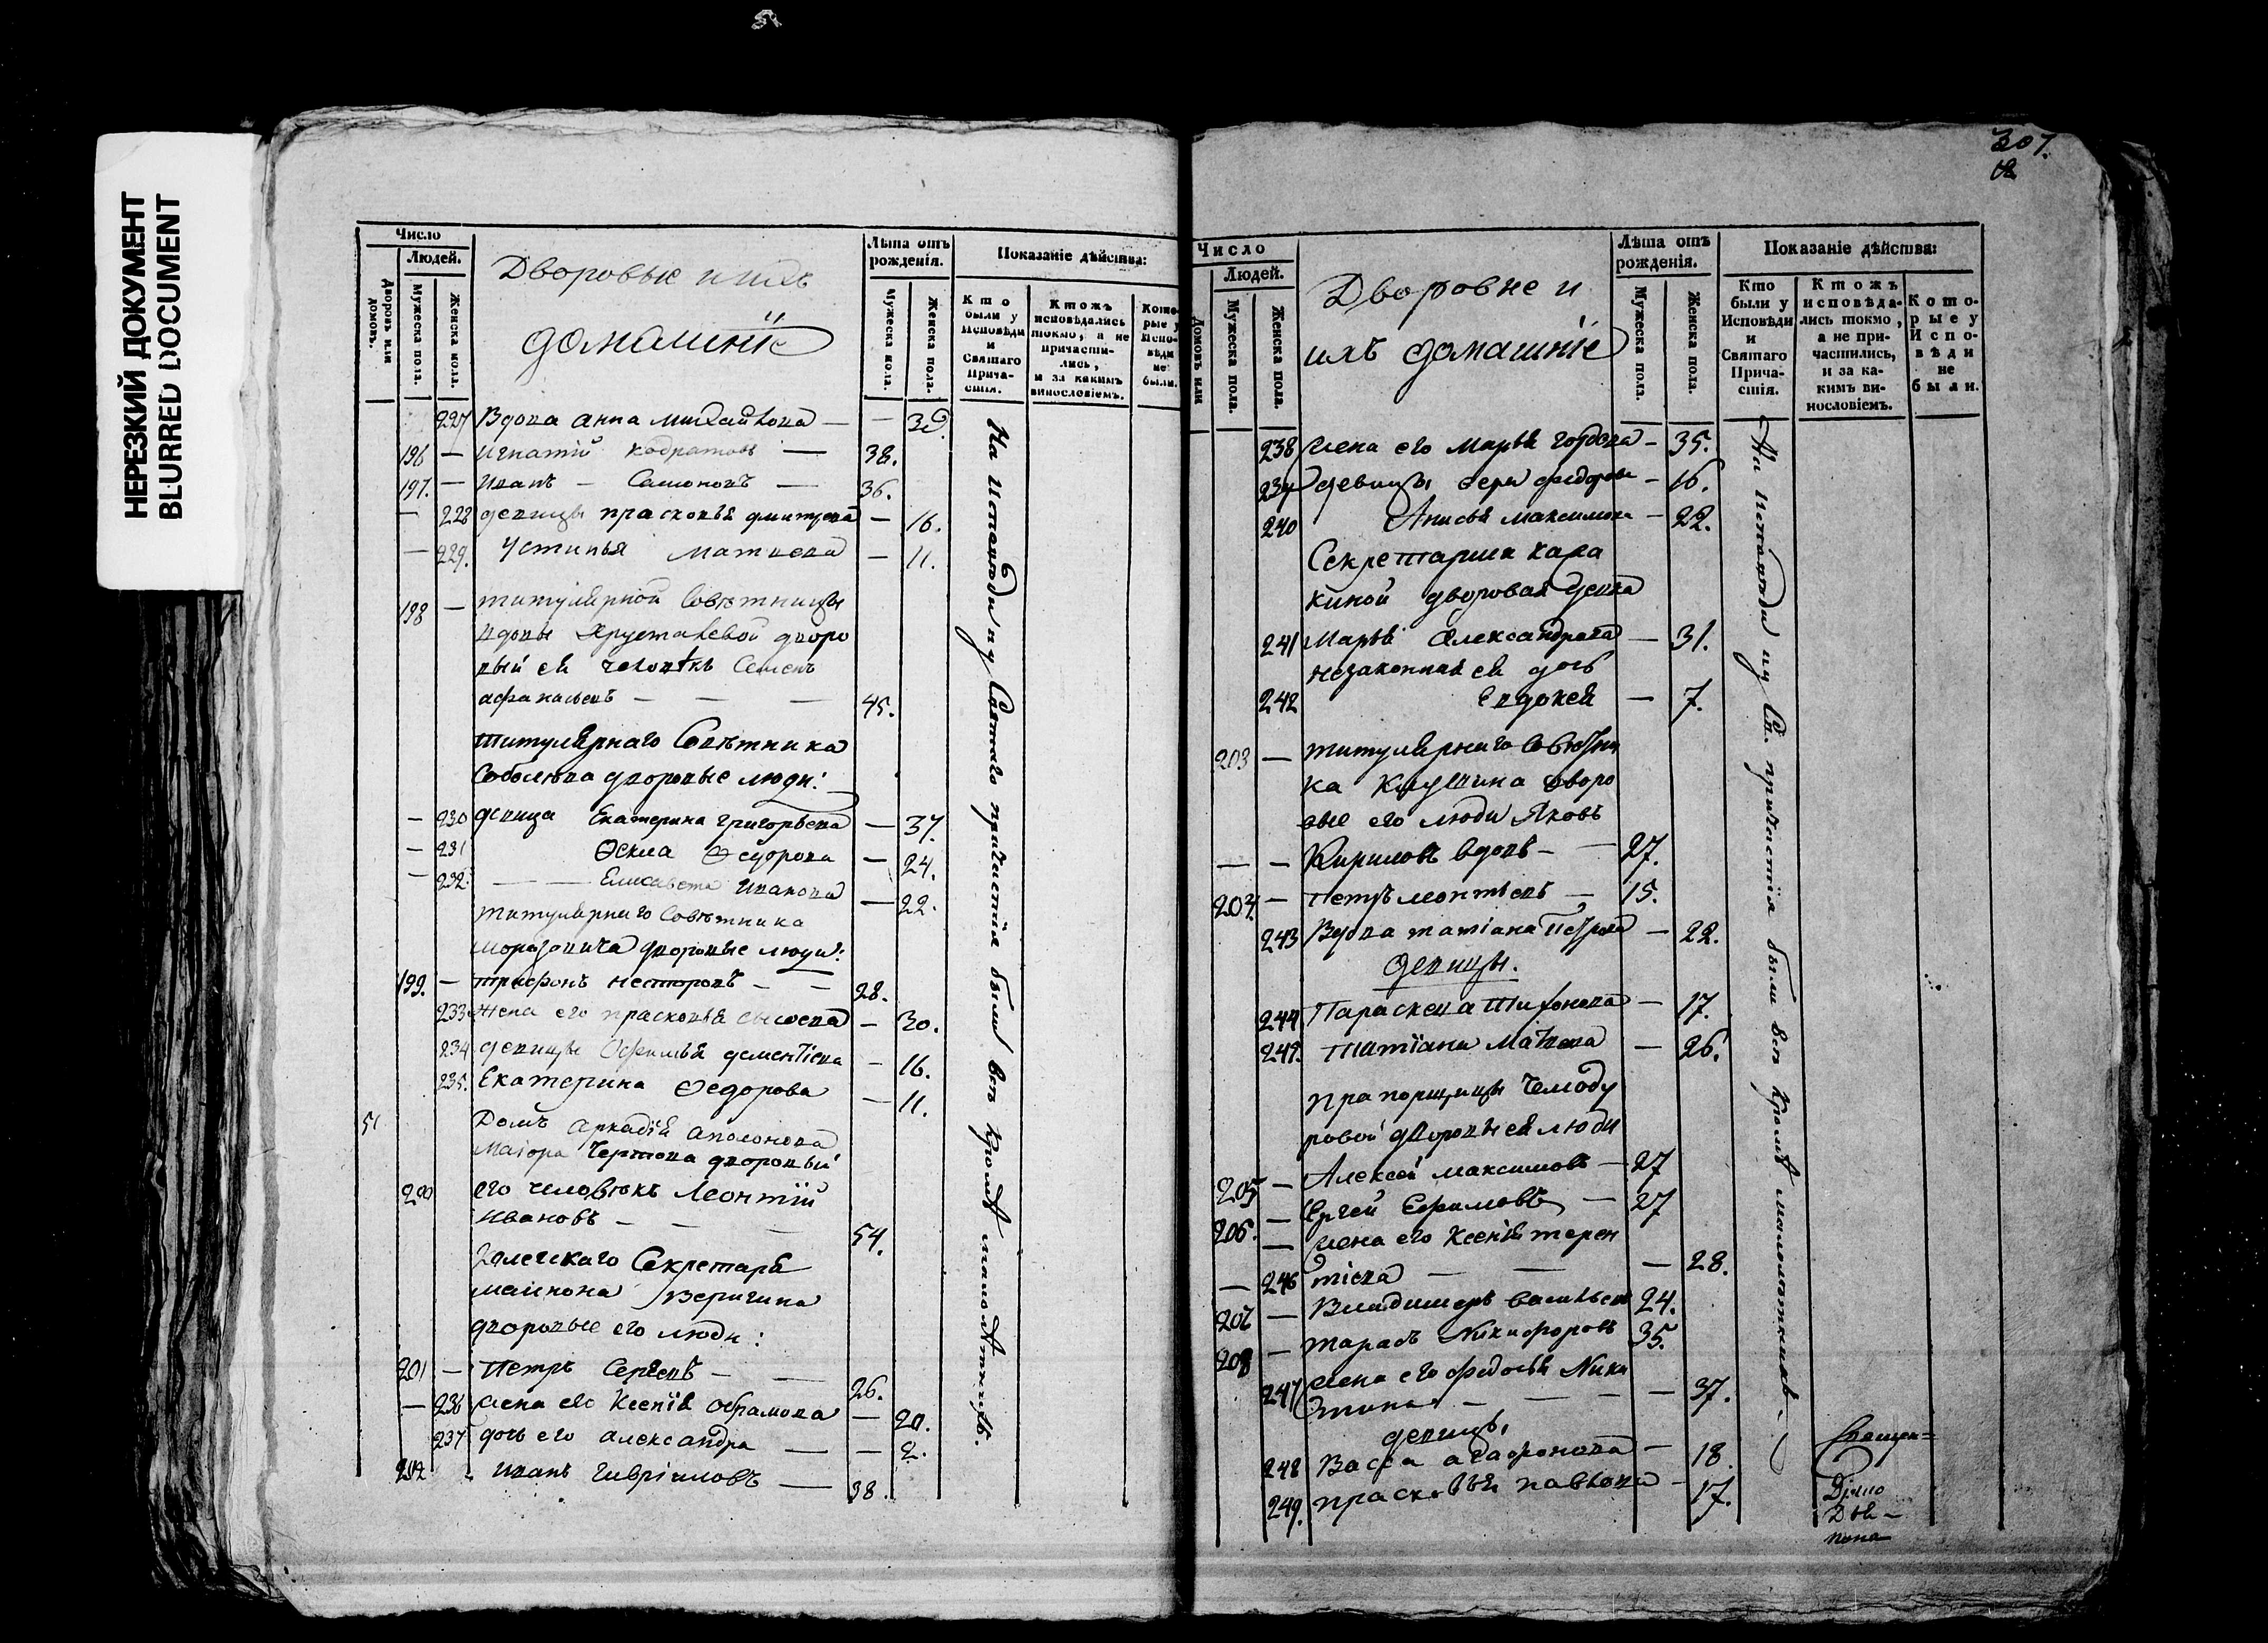 НЕРЕЗКИЙ ДОКУМЕНТ
BLURRED DOCUMENT
Число
Людей.
Дворовъ или домовъ.
Мужеска пола.
Женска пола.
Дворовые и ихъ
домашніе
Лѣта отъ рожденія.
Мужеска пола.
Женска пола.
Показаніе дѣйства:
Кто были у Исповѣди и Святаго Причастія.
Ктожъ исповѣдались токмо, а не причастились, и за какимъ винословіемъ.
Которые у Исповѣди не были.
227 Вдова анна михайлова —
196 — игнатій кодратовъ — 38.
197. — иванъ — Самоновъ — 36.
— 228 девицы прасковья дмитрева — 16.
— 229. Устинья матвева — 11.
198 — титулярной Совѣтницы
вдовы Хрусталевой дворо
вый ея человѣкъ Семенъ
афанасьевъ — — — 45.
титулярнаго Совѣтника
Соболева дворовые люди:
— 230 девица Екатерина григорьева — 37.
— 231 Ѳекла Ѳедорова — 24.
— 232. — — Елисавета иванова — 22.
титулярнаго Совѣтника
морозовича дворовые люди:
199. — трифонъ несторовъ — — 28.
233 Жена его прасковья — 30.
234 девицы Офимья дементіева — 16.
235. Екатерина Ѳедорова — 11.
51 Домъ аркадія аполонова
Маіора Чертова дворовый
200 его человѣкъ Леонтій
Ивановъ — — — 54.
Секретаря
Веригина
дворовые его люди:
201 — Петръ Сергеевъ — — 26.
— 236 жена его Ксенія абрамова — 20.
237 дочь его александра — — 2.
202 иванъ гавріиловъ — 38.
На Исповѣди и у Святаго причастія были всѣ кромѣ малолѣтнихъ.
307.
Число
Людей.
Домовъ или
Мужеска пола.
Женска пола.
Дворовые и
ихъ домашніе
Лѣта отъ рожденія.
Мужеска пола.
Женска пола.
Показаніе дѣйства:
Кто были у Исповѣди и Святаго Причастія.
Ктожъ исповѣдались токмо, а не причастились, и за какимъ винословіемъ.
Которые у Исповѣди не были.
238 жена его Марья — 35.
239 девицы вера федорова — 16.
240 Анисья максимова — 22.
Секретарши Кара
киной дворовая девка
241 Марья Александрова — 31.
незаконная ея дочь
242 Евдокея — 7.
203 — титулярнаго Совѣтни
ка дворо
вые его люди Яковъ
— — Кириловъ вдовъ — — 27.
204. — Петръ леонтьевъ — 15.
243 Вдова татіана Петрова — 22.
девицы.
244 Параскева Тихонова — 17.
245. Татіана Матвева — 26.
прапорщицы Чемоду
ровой дворовые ея люди
205 — Алексей максимовъ — 27
206. — Сергей Ефимовъ — 27
— жена его Ксенія терен
— 246 тіева — — — 28.
207 — Владимеръ васильевъ 24.
208 — тарасъ Никифоровъ 35.
247 жена его федосья Ники
тина — — — 37.
девицы,
248 Васса агафонова — 18.
249. прасковья павлова — 17.
На исповѣди и у Св. причастія были всѣ кромѣ малолѣтнихъ.